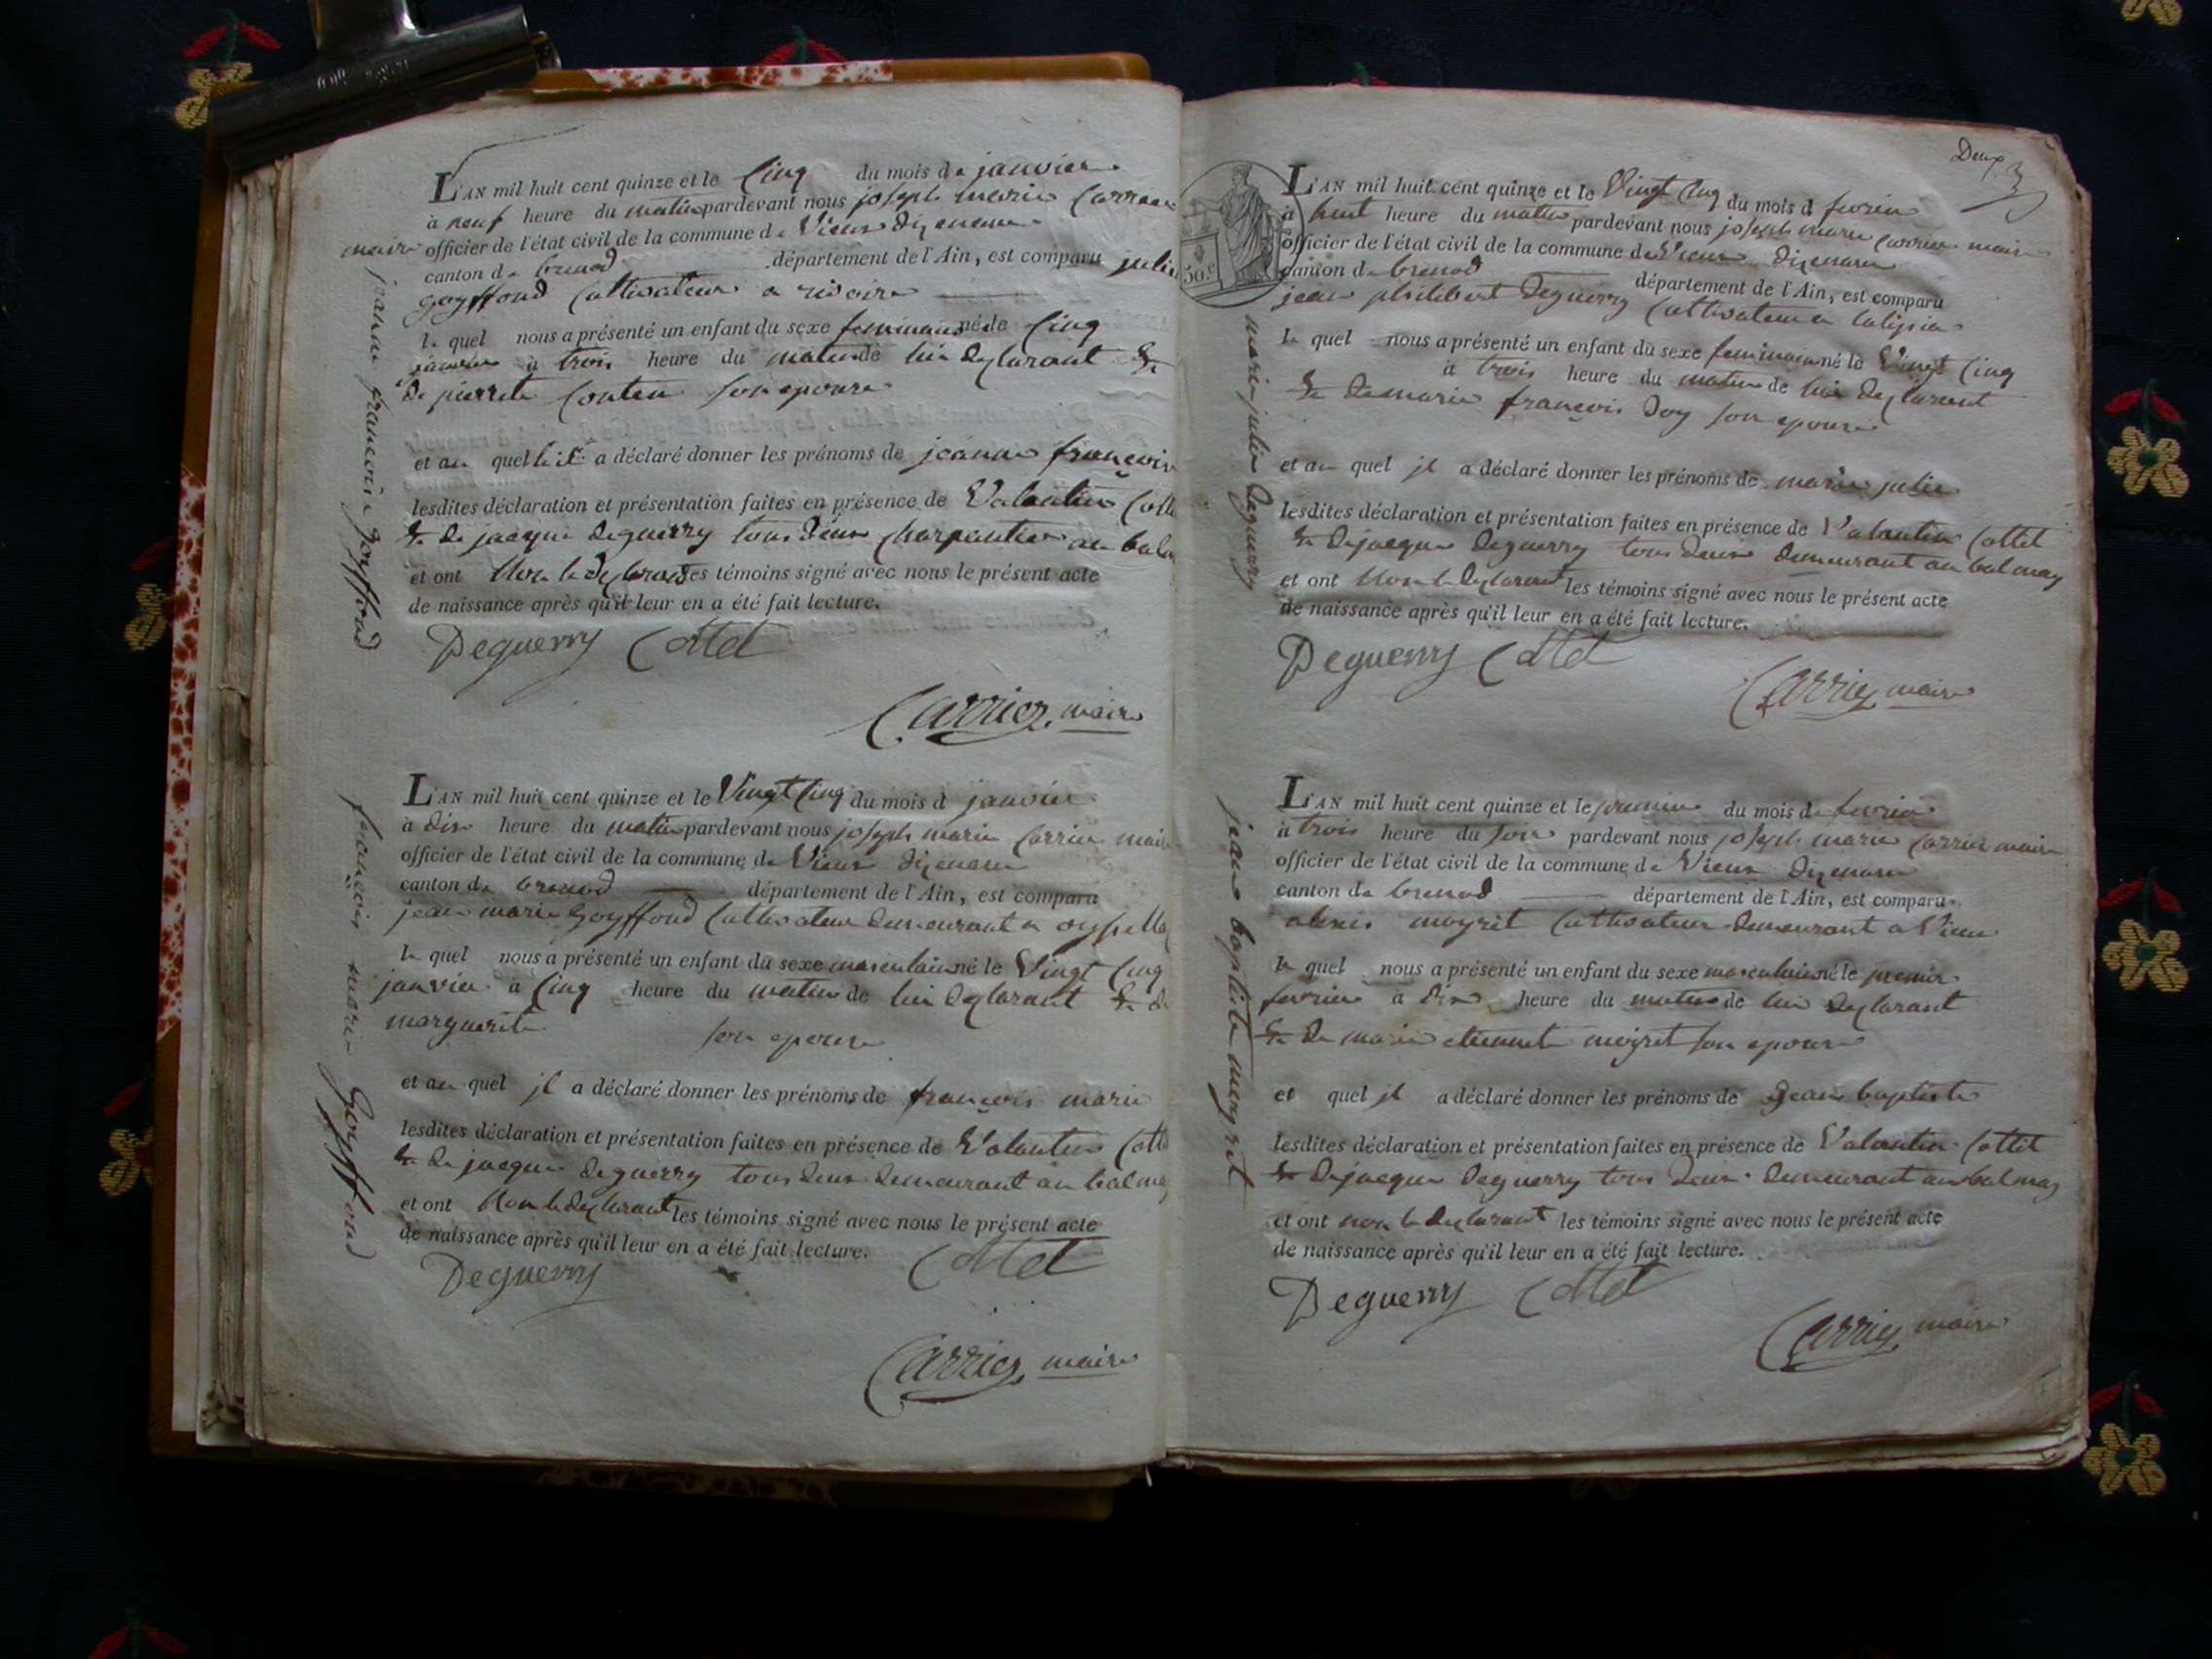 L'AN mil huit cent quinze et le Cinq du mois de janvier
à neuf heure du matin pardevant nous joseph marie Carrier
maire officier de l'état civil de la commune de Vieux dizenave
canton de brenod département de l'Ain, est comparu julie
goyffond Cultivateur a rivoire
le quel nous a présenté un enfant du sexe feminain né le Cinq
janvier à trois heure du matin de lui declarant &
de pierrete Conten son epouse
et au quel il a déclaré donner les prénoms de jeanne françoise
lesdites déclaration et présentation faites en présence de Valantin Cotte
& de jacque deguerry tous deux charpentier au balm
et ont Non le declarant les témoins signé avec nous le présent acte
de naissance après qu'il leur en a été fait lecture.
Deguerry Cottet
Carrier, maire
jeanne francoise goyffond
L'AN mil huit cent quinze et le Vingt Cinq du mois d janvier
à dix heure du matin pardevant nous joseph marie Carrier maire
officier de l'état civil de la commune de Vieux dizenave
canton de brenod département de l'Ain, est comparu
jean marie goyffond Cultivateur demeurant a
le quel nous a présenté un enfant du sexe masculain né le Vingt Cinq
janvier à Cinq heure du matin de lui declarant & de
marguerite son epouse
et au quel jl a déclaré donner les prénoms de françois marie
lesdites déclaration et présentation faites en présence de Valantin Cotte
& de jacque deguerry tous deux demeurant au balma
et ont Non le declarant les témoins signé avec nous le présent acte
de naissance après qu'il leur en a été fait lecture.
Deguerry Cottet
Carrier, maire
françois marie Goyffond
Deux
L'AN mil huit cent quinze et le Vingt Cinq du mois d fevrier
à huit heure du matin pardevant nous joseph marie Carrier maire
officier de l'état civil de la commune de Vieux dizenave
canton de brenod département de l'Ain, est comparu
50.c
jean philibert Deguerry Cultivateur a
le quel nous a présenté un enfant du sexe feminain né le Vingt Cinq
à trois heure du matin de lui declarant
& de marie françois Joy son epouse
et au quel jl a déclaré donner les prénoms de marie julie
lesdites déclaration et présentation faites en présence de Valantin Cottet
& de jacque Deguerry tous deux demeurant au balmay
et ont Non le declarant les témoins signé avec nous le présent acte
de naissance après qu'il leur en a été fait lecture.
Deguerry Cottet
Carrier maire
marie julie Deguerry
L'AN mil huit cent quinze et le premier du mois de fevrier
à trois heure du soir pardevant nous joseph marie Carrier maire
officier de l'état civil de la commune de Vieux dizenave
canton de brenod département de l'Ain, est comparu
alexis moyret Cultivateur demeurant a Vieu
le quel nous a présenté un enfant du sexe masculain né le premier
fevrier à dix heure du matin de lui declarant
& de marie etiennet moyret son epouse
et quel jl a déclaré donner les prénoms de Jean baptiste
lesdites déclaration et présentation faites en présence de Valantin Cottet
& de jacque Deguerry tous deux demeurant au balmay
et ont non le declarant les témoins signé avec nous le présent acte
de naissance après qu'il leur en a été fait lecture.
Deguerry Cottet
Carrier, maire
jean baptiste meyret